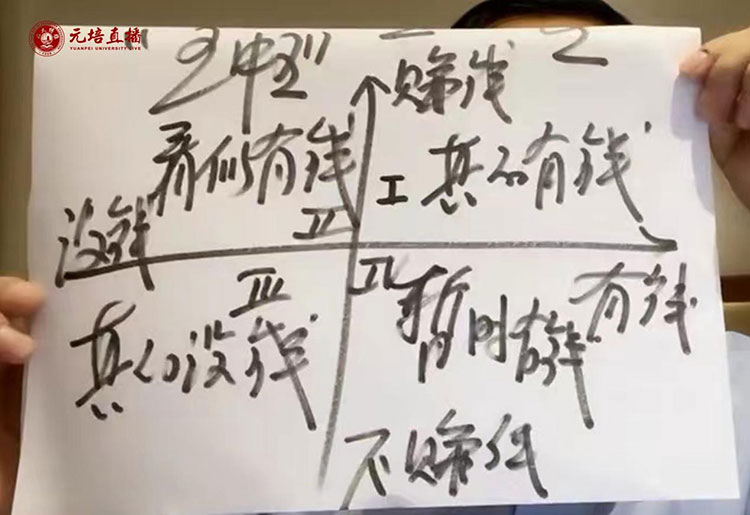 元培直播
YUANPEI UNIVERSITY LIVE
赚钱
看似有钱
I 真的有钱
没钱
III
有钱
真的没钱
暂时有钱
不赚钱